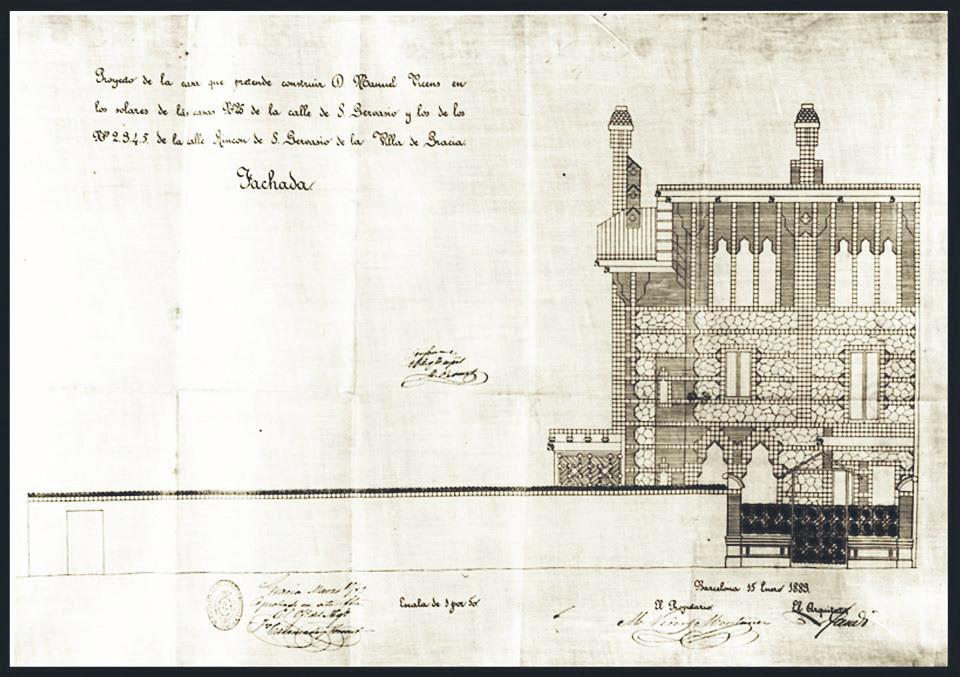 Proyecto de la casa que pretende construir D Manuel Vicens en
los solares de las casas Nº 26 de la calle de S. Gervasio y los de los
Nº 2.3.4.5. de la calle Rincon de S. Gervasio de la Villa de Gracia.
Fachada
Gracia Marzo
Escala de 1 por 50
Barcelona 15 Enero 1883.
El Propietario
El Arquitecto
M. Vicens y Montaner
Gaudí